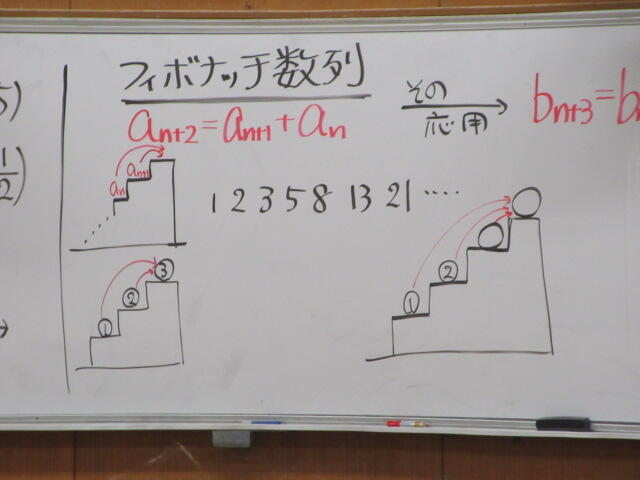 5)
1
2)
フィボナッチ数列
an+2=an+1+an
その
応用
bn+3=b
an
an+1
1 2 3 5 8 13 21 ‥‥
①
②
③
①
②